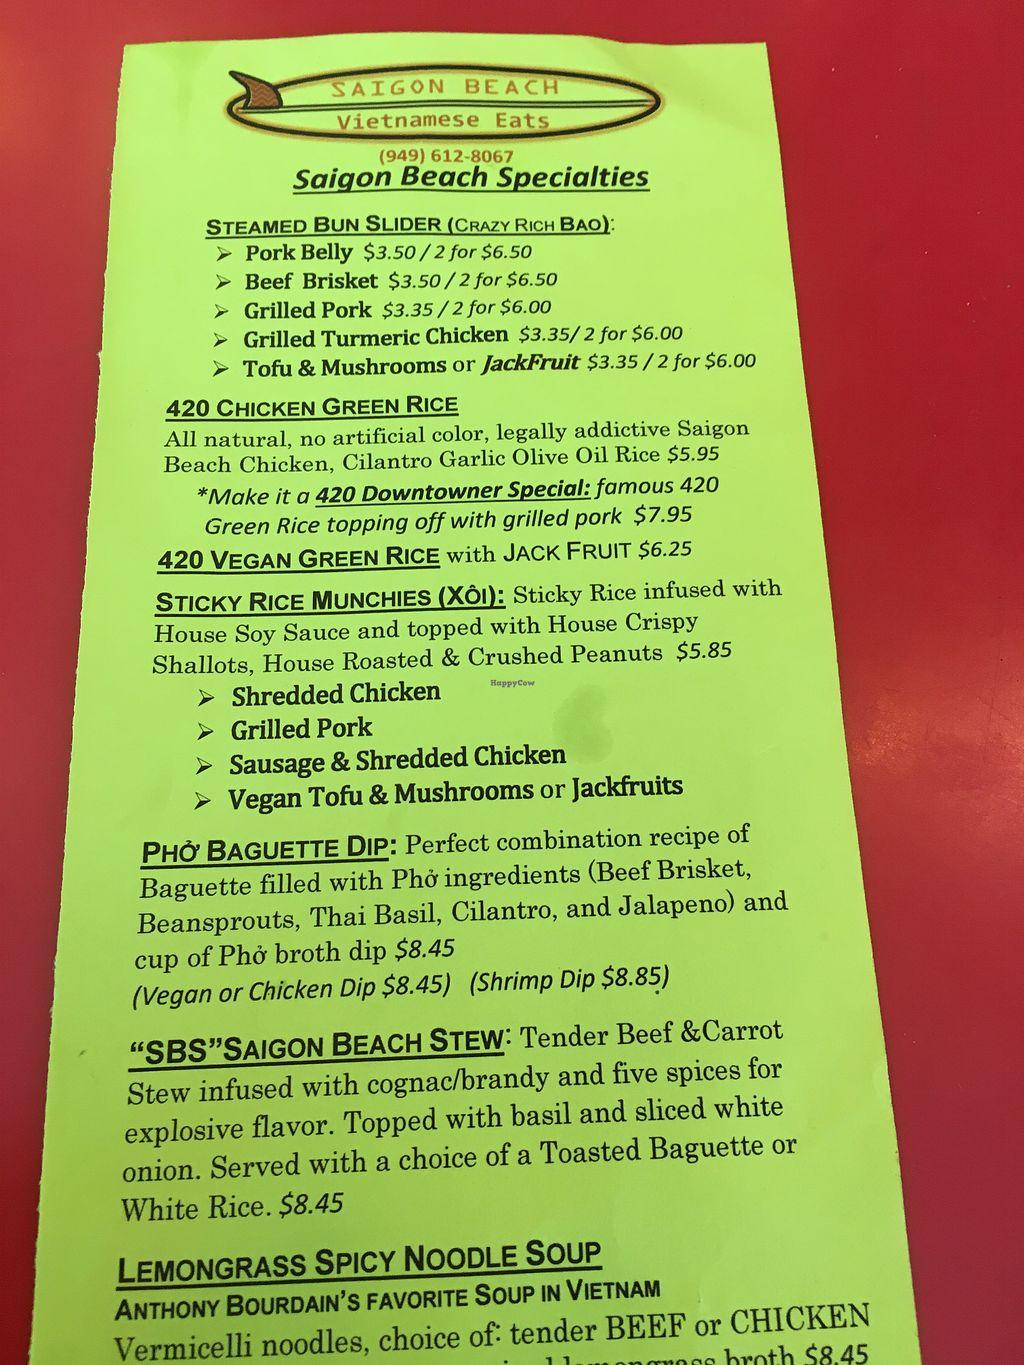 SAIGON BEACH
Vietnamese Eats
(949) 612-8067
Saigon Beach Specialties
STEAMED BUN SLIDER (CRAZY RICH BAO):
➢ Pork Belly $3.50 / 2 for $6.50
➢ Beef Brisket $3.50 / 2 for $6.50
➢ Grilled Pork $3.35 / 2 for $6.00
➢ Grilled Turmeric Chicken $3.35/ 2 for $6.00
➢ Tofu & Mushrooms or JackFruit $3.35 / 2 for $6.00
420 CHICKEN GREEN RICE
All natural, no artificial color, legally addictive Saigon
Beach Chicken, Cilantro Garlic Olive Oil Rice $5.95
*Make it a 420 Downtowner Special: famous 420
Green Rice topping off with grilled pork $7.95
420 VEGAN GREEN RICE with JACK FRUIT $6.25
STICKY RICE MUNCHIES (XÔI): Sticky Rice infused with
House Soy Sauce and topped with House Crispy
Shallots, House Roasted & Crushed Peanuts $5.85
HappyCow
➢ Shredded Chicken
➢ Grilled Pork
➢ Sausage & Shredded Chicken
➢ Vegan Tofu & Mushrooms or Jackfruits
PHỞ BAGUETTE DIP: Perfect combination recipe of
Baguette filled with Phở ingredients (Beef Brisket,
Beansprouts, Thai Basil, Cilantro, and Jalapeno) and
cup of Phở broth dip $8.45
(Vegan or Chicken Dip $8.45) (Shrimp Dip $8.85)
“SBS”SAIGON BEACH STEW: Tender Beef &Carrot
Stew infused with cognac/brandy and five spices for
explosive flavor. Topped with basil and sliced white
onion. Served with a choice of a Toasted Baguette or
White Rice. $8.45
LEMONGRASS SPICY NOODLE SOUP
ANTHONY BOURDAIN'S FAVORITE SOUP IN VIETNAM
Vermicelli noodles, choice of: tender BEEF or CHICKEN
lemongrass broth $8.45